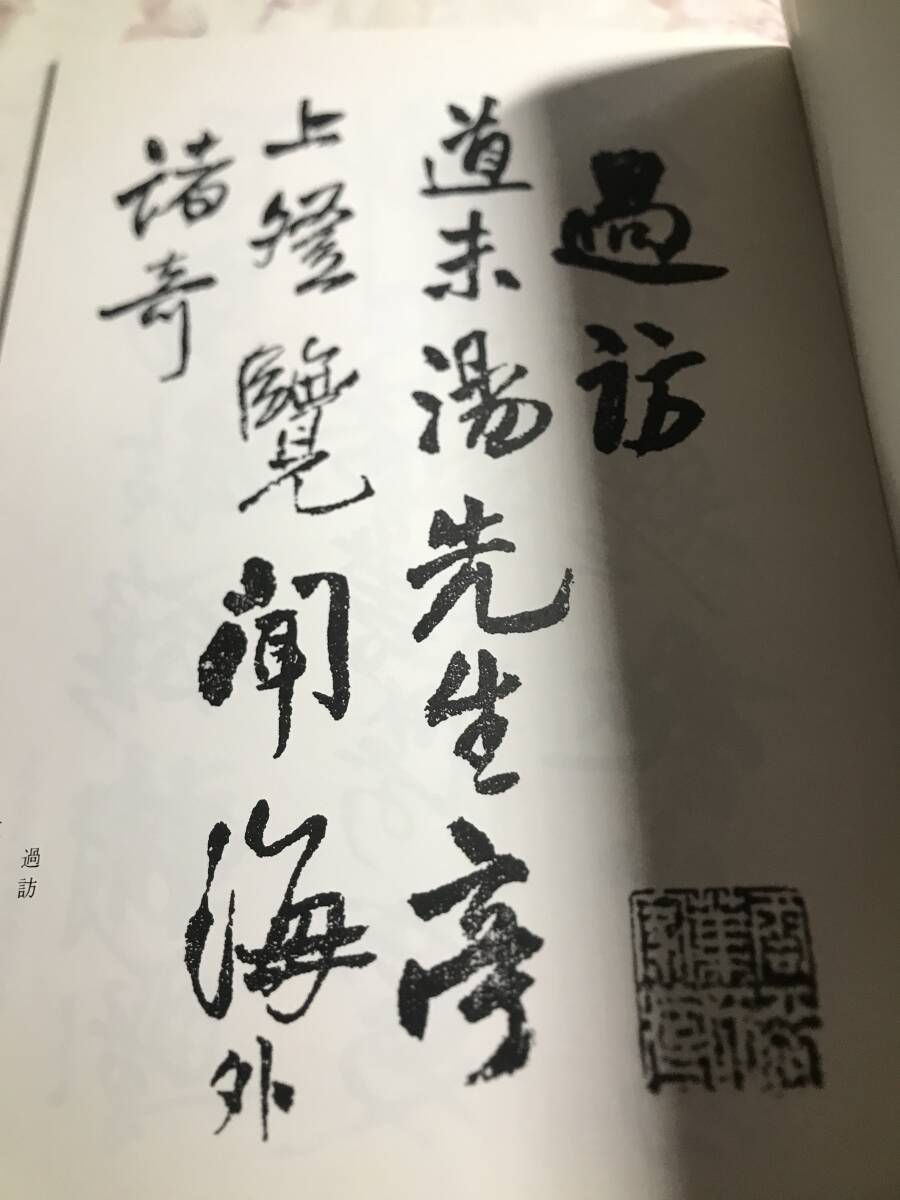 過訪
道未湯先生亭
上登覽聞海外
諸奇
過訪